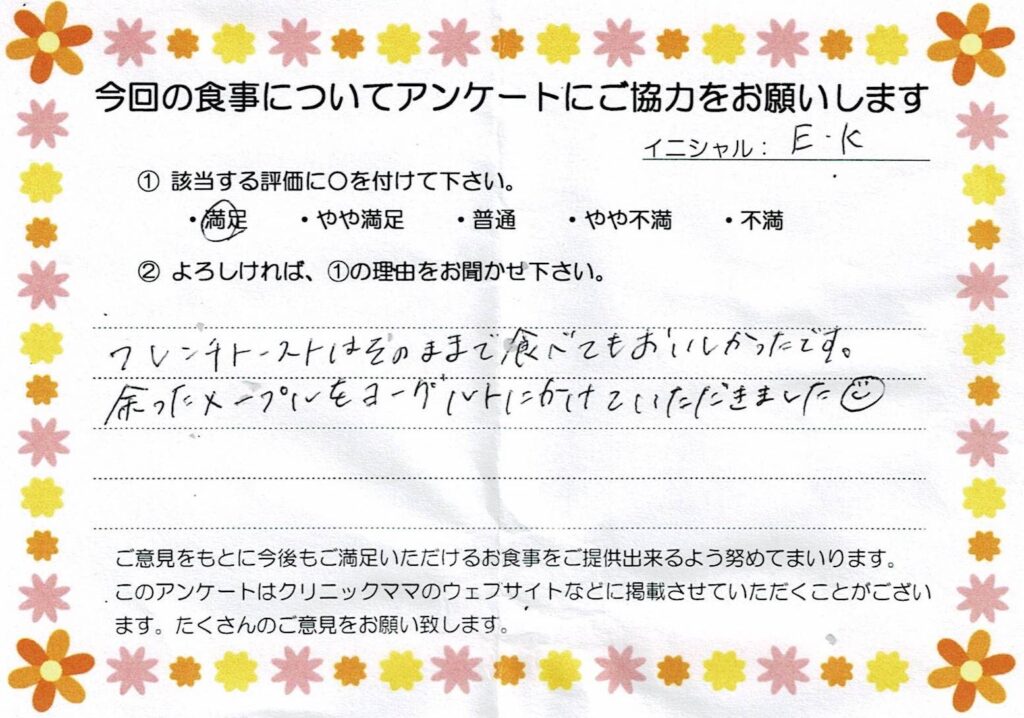 今回の食事についてアンケートにご協力をお願いします
イニシャル： E・K
① 該当する評価に〇を付けて下さい。
・満足 ・やや満足 ・普通 ・やや不満 ・不満
② よろしければ、①の理由をお聞かせ下さい。
フレンチトーストはそのままで食べてもおいしかったです。
余ったメープルをヨーグルトにかけていただきました☺
ご意見をもとに今後もご満足いただけるお食事をご提供出来るよう努めてまいります。
このアンケートはクリニックママのウェブサイトなどに掲載させていただくことがござい
ます。たくさんのご意見をお願い致します。